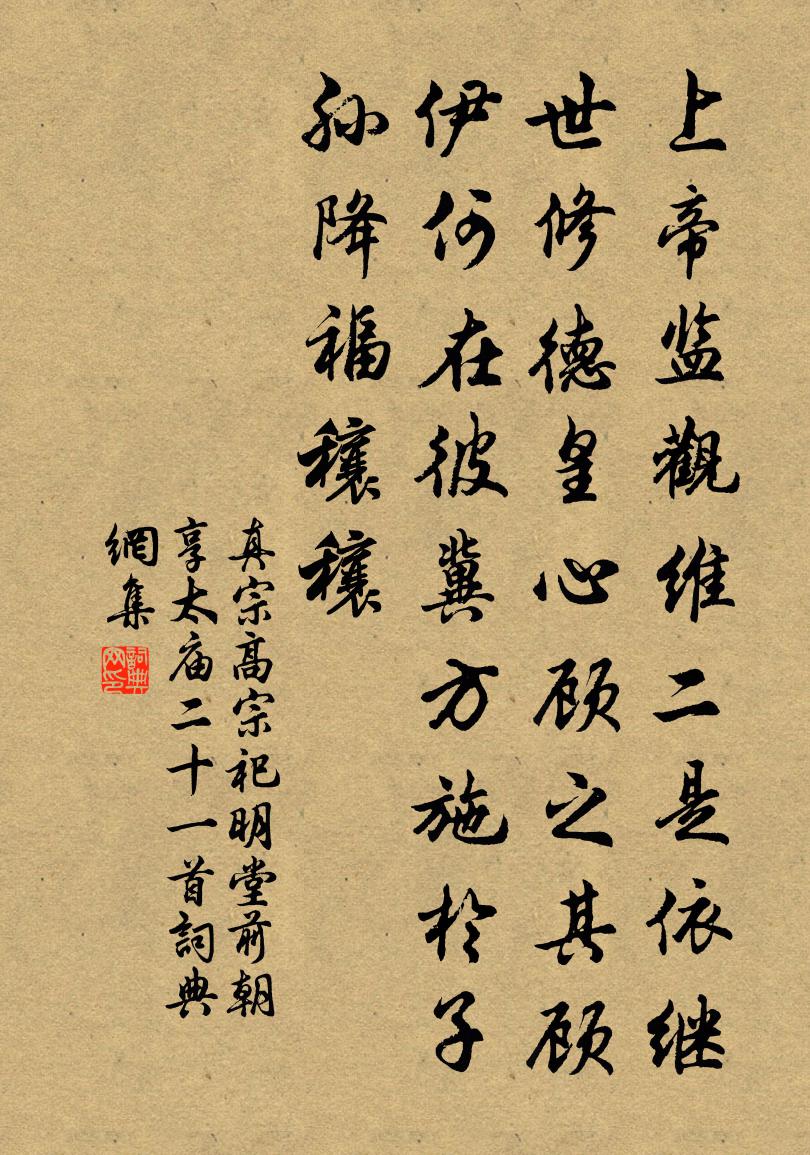 上帝监觀维二是依继
世修德皇心顾之其顾
伊何在彼冀方施於子
孙降福穰穰
真宗高宗祀明堂前朝
享太庙二十一首詞典
網集
詞典网印